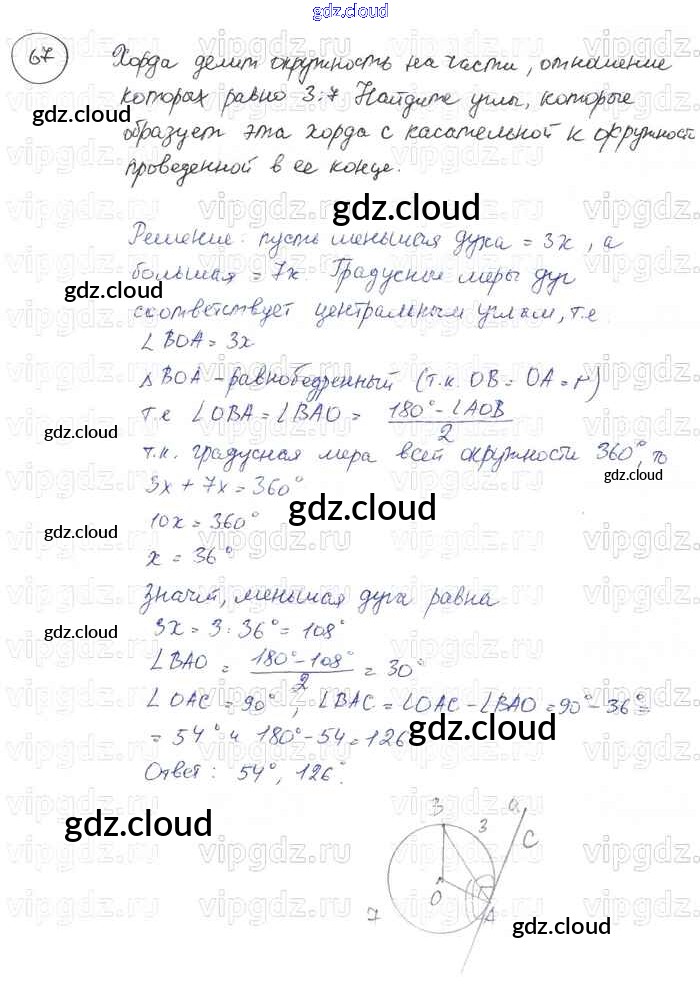 gdz.cloud
67
Хорда делит окружность на части, отношение
которых равно 3:7 Найдите углы, которые
gdz.cloud
образует эта хорда с касательной к окружност
проведенной в ее конце.
gdz.cloud
Решение: пусть меньшая дуга = 3x, а
большая = 7x. Градусные меры дуг
gdz.cloud
соответствует центральным углам, т.е
∠BOA = 3x
△BOA - равнобедренный (т.к. OB = OA = r)
т.е ∠OBA = ∠BAO = (180° - ∠AOB)/2
gdz.cloud
т.к. градусная мера всей окружности 360°, то
gdz.cloud
3x + 7x = 360°
gdz.cloud
10x = 360°
gdz.cloud
x = 36°
Значит, меньшая дуга равна
3x = 3 · 36° = 108°
gdz.cloud
∠BAO = (180° - 108°)/2 = 30°
∠OAC = 90°, ∠BAC = ∠OAC - ∠BAO = 90° - 36° =
gdz.cloud
= 54° и 180° - 54 = 126
Ответ: 54°, 126°.
gdz.cloud
B
a
3
C
O
A
7
gdz.cloud
vipgdz.ru